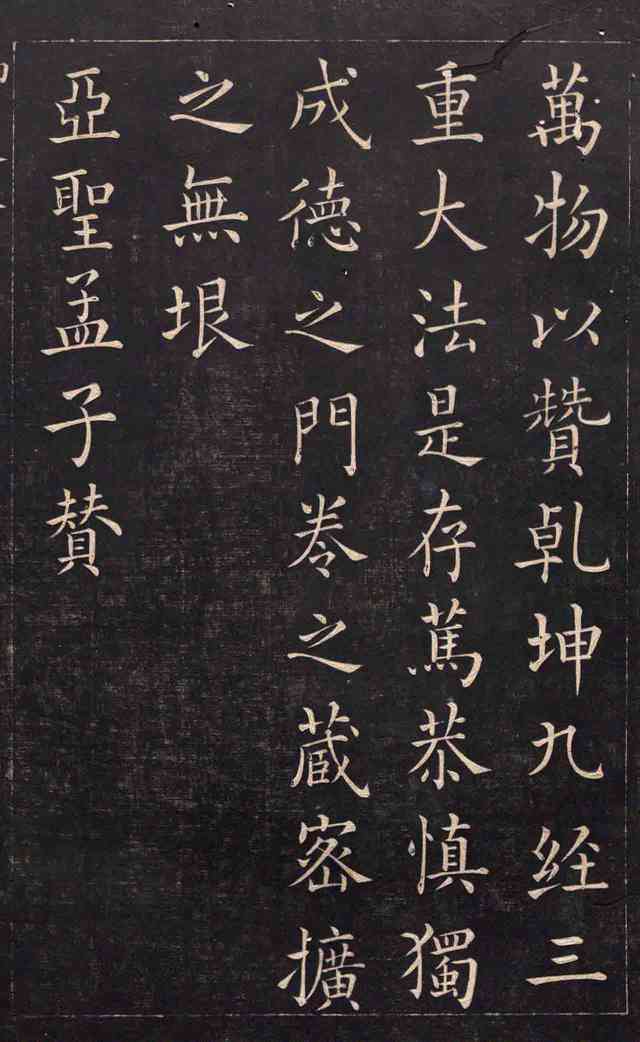 萬物以贊乹坤九经三
重大法是存篤恭慎獨
成德之門卷之蔵密擴
之無垠
亞聖孟子贊